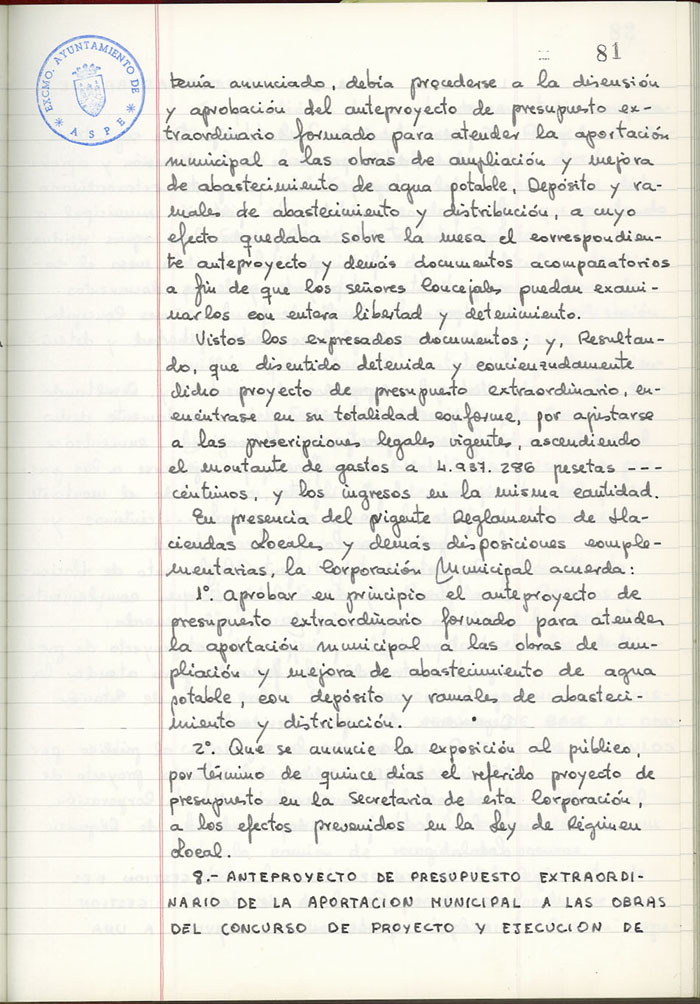 81
EXCMO. AYUNTAMIENTO DE
* ASPE *
tenía anunciado, debía procederse a la discusión
y aprobación del anteproyecto de presupuesto ex-
traordinario formado para atender la aportación
municipal a las obras de ampliación y mejora
de abastecimiento de agua potable, Depósito y ra-
males de abastecimiento y distribución, a cuyo
efecto quedaba sobre la mesa el correspondien-
te anteproyecto y demás documentos acompañatorios
a fin de que los señores Concejales puedan exami-
narlos con entera libertad y detenimiento.
Vistos los expresados documentos; y, Resultan-
do, que discutido detenida y concienzudamente
dicho proyecto de presupuesto extraordinario, en-
cuéntrase en su totalidad conforme, por ajustarse
a las prescripciones legales vigentes, ascendiendo
el montante de gastos a 4.937.286 pesetas ---
céntimos, y los ingresos en la misma cantidad.
En presencia del vigente Reglamento de Ha-
ciendas Locales y demás disposiciones comple-
mentarias, la Corporación Municipal acuerda:
1º. Aprobar en principio el anteproyecto de
presupuesto extraordinario formado para atender
la aportación municipal a las obras de am-
pliación y mejora de abastecimiento de agua
potable, con depósito y ramales de abasteci-
miento y distribución.
2º. Que se anuncie la exposición al público,
por término de quince días el referido proyecto de
presupuesto en la Secretaria de esta Corporación,
a los efectos prevenidos en la Ley de Régimen
Local.
8.- ANTEPROYECTO DE PRESUPUESTO EXTRAORDI-
NARIO DE LA APORTACION MUNICIPAL A LAS OBRAS
DEL CONCURSO DE PROYECTO Y EJECUCION DE